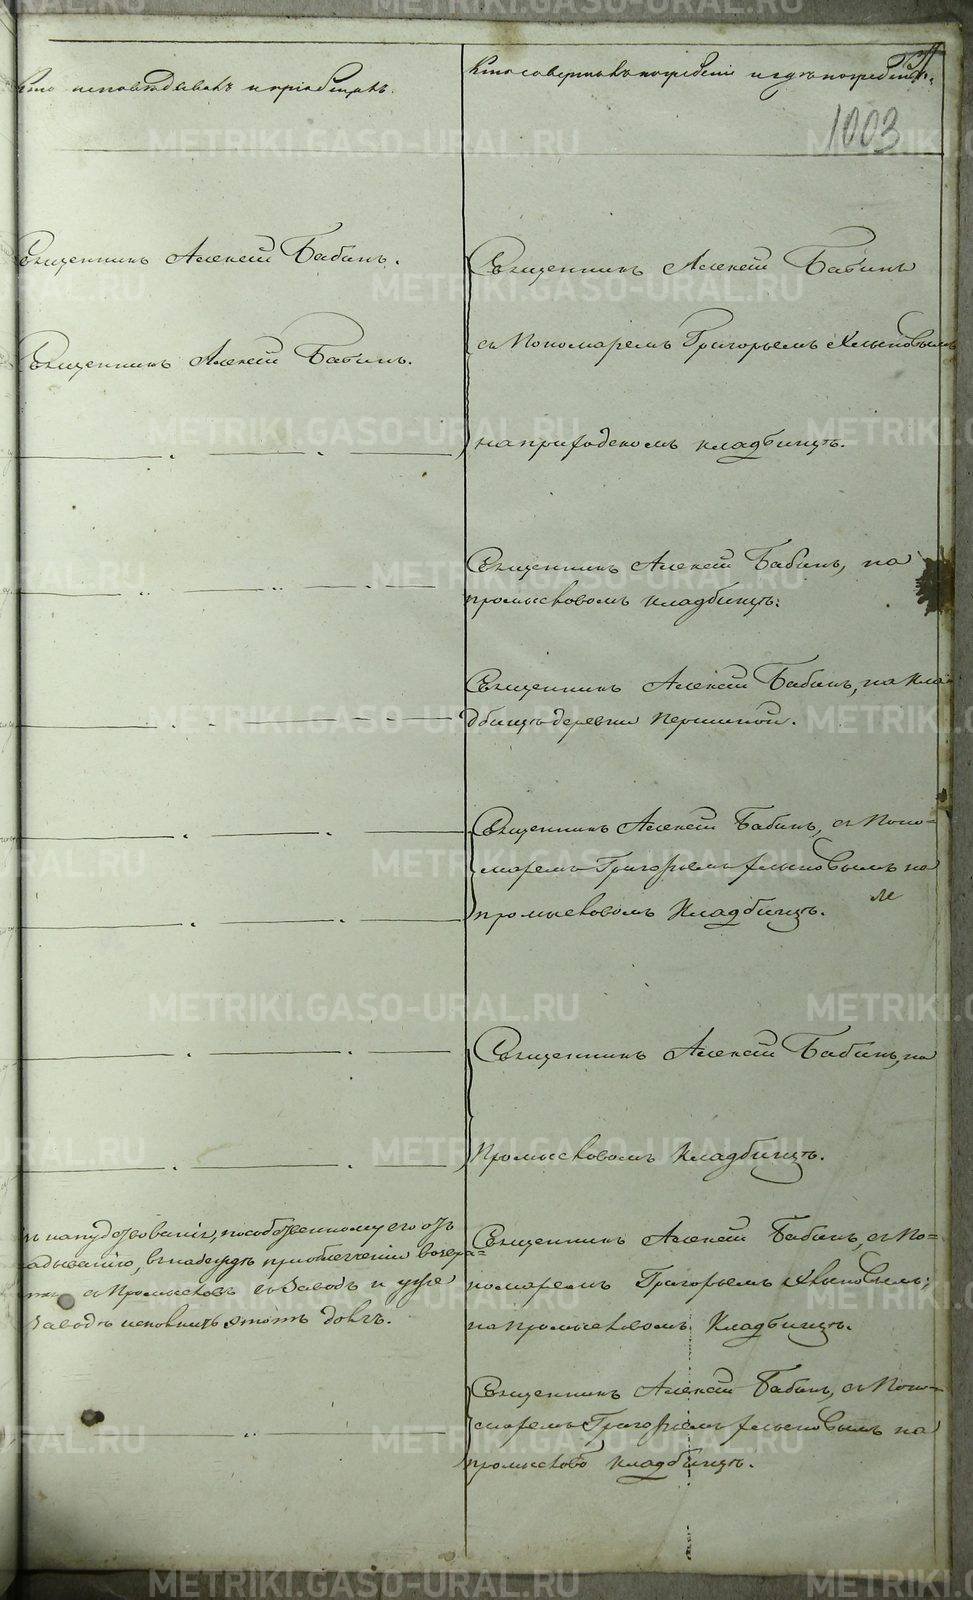 Кто исповѣдывалъ и пріобщалъ.
Кто совершалъ погребеніе и гдѣ погребены.
1003
Священникъ Алексѣй Бабинъ.
Священникъ Алексѣй Бабинъ.
Священникъ Алексѣй Бабинъ
съ Пономаремъ Григорьемъ Хлыновымъ
на приходскомъ кладбищѣ.
Священникъ Алексѣй Бабинъ, на
промысковомъ кладбищѣ:
Священникъ Алексѣй Бабинъ, на кла-
дбищѣ деревни Першиной.
Священникъ Алексѣй Бабинъ, съ Поно-
маремъ Григорьемъ Хлыновымъ на
промысковомъ кладбищѣ.
Священникъ Алексѣй Бабинъ, на
Промысковомъ кладбищѣ.
напутствованія, по собственному его от
адыванію, въ надеждѣ при облегченіи возвра-
съ Промысковъ въ Заводъ и уже
Заводѣ исполнить этотъ долгъ.
Священникъ Алексѣй Бабинъ, съ По-
номаремъ Григорьемъ Хлыновымъ,
на промысковомъ Кладбищѣ.
Священникъ Алексѣй Бабинъ, съ Поно-
маремъ Григорьемъ Хлыновымъ на
промысково кладбищѣ.
METRIKI.GASO-URAL.RU